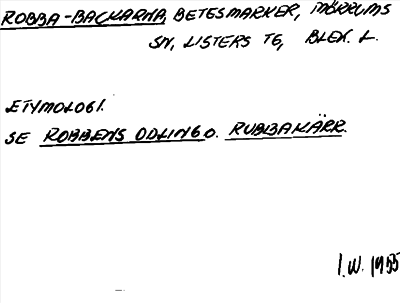 ROBBA-BACKARNA, BETESMARKER, MÖRRUMS
SN, LISTERS TG, BLEK. L.
ETYMOLOGI.
SE ROBBENS ODLING O. RUBBAKÄRR.
I.W. 1955